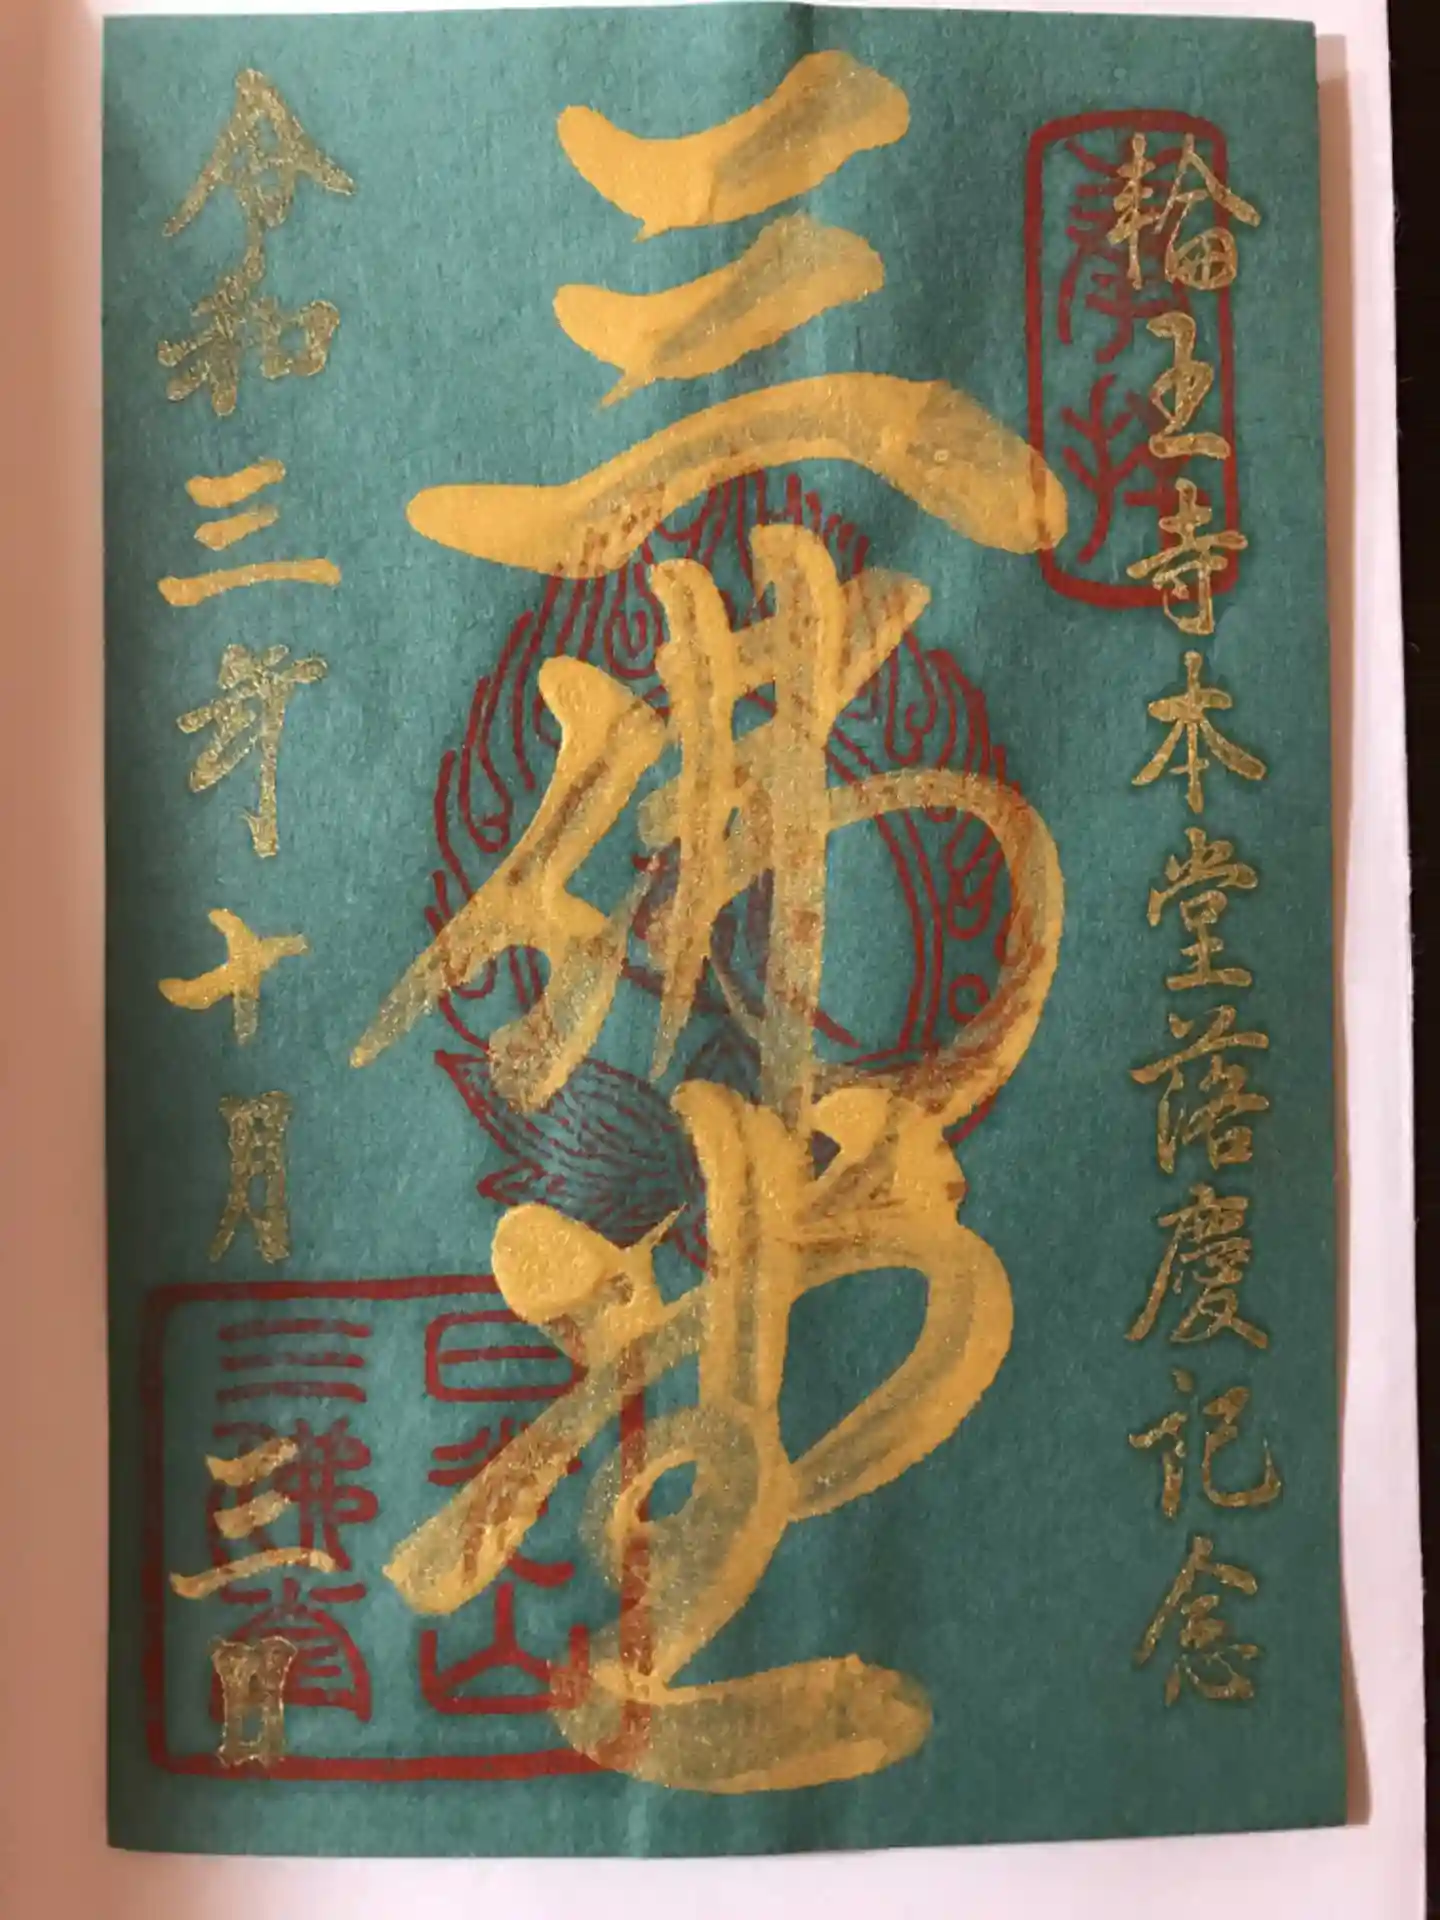 奉拝
輪王寺本堂落慶記念
三佛堂
日光山
三佛堂
令和三年十月三日